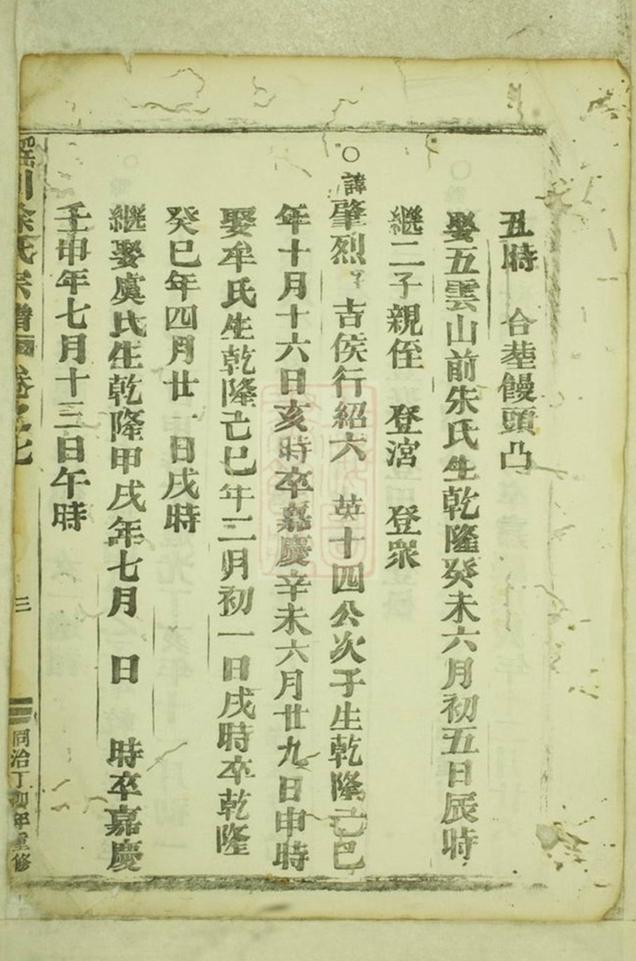 丑時 合塟饅頭凸
娶五雲山前朱氏生乾隆癸未六月初五日辰時
継二子親侄 登宮 登衆
○諱肇烈 字吉侯行紹六 英十四公次子生乾隆己巳
年十月十六日亥時卒嘉慶辛未六月廿九日申時
娶牟氏生乾隆己巳年二月初一日戌時卒乾隆
癸巳年四月廿一日戌時
継娶虞氏生乾隆甲戌年七月 日 時卒嘉慶
壬申年七月十三日午時
川徐氏宗譜 卷之七 三 同治丁卯年重修